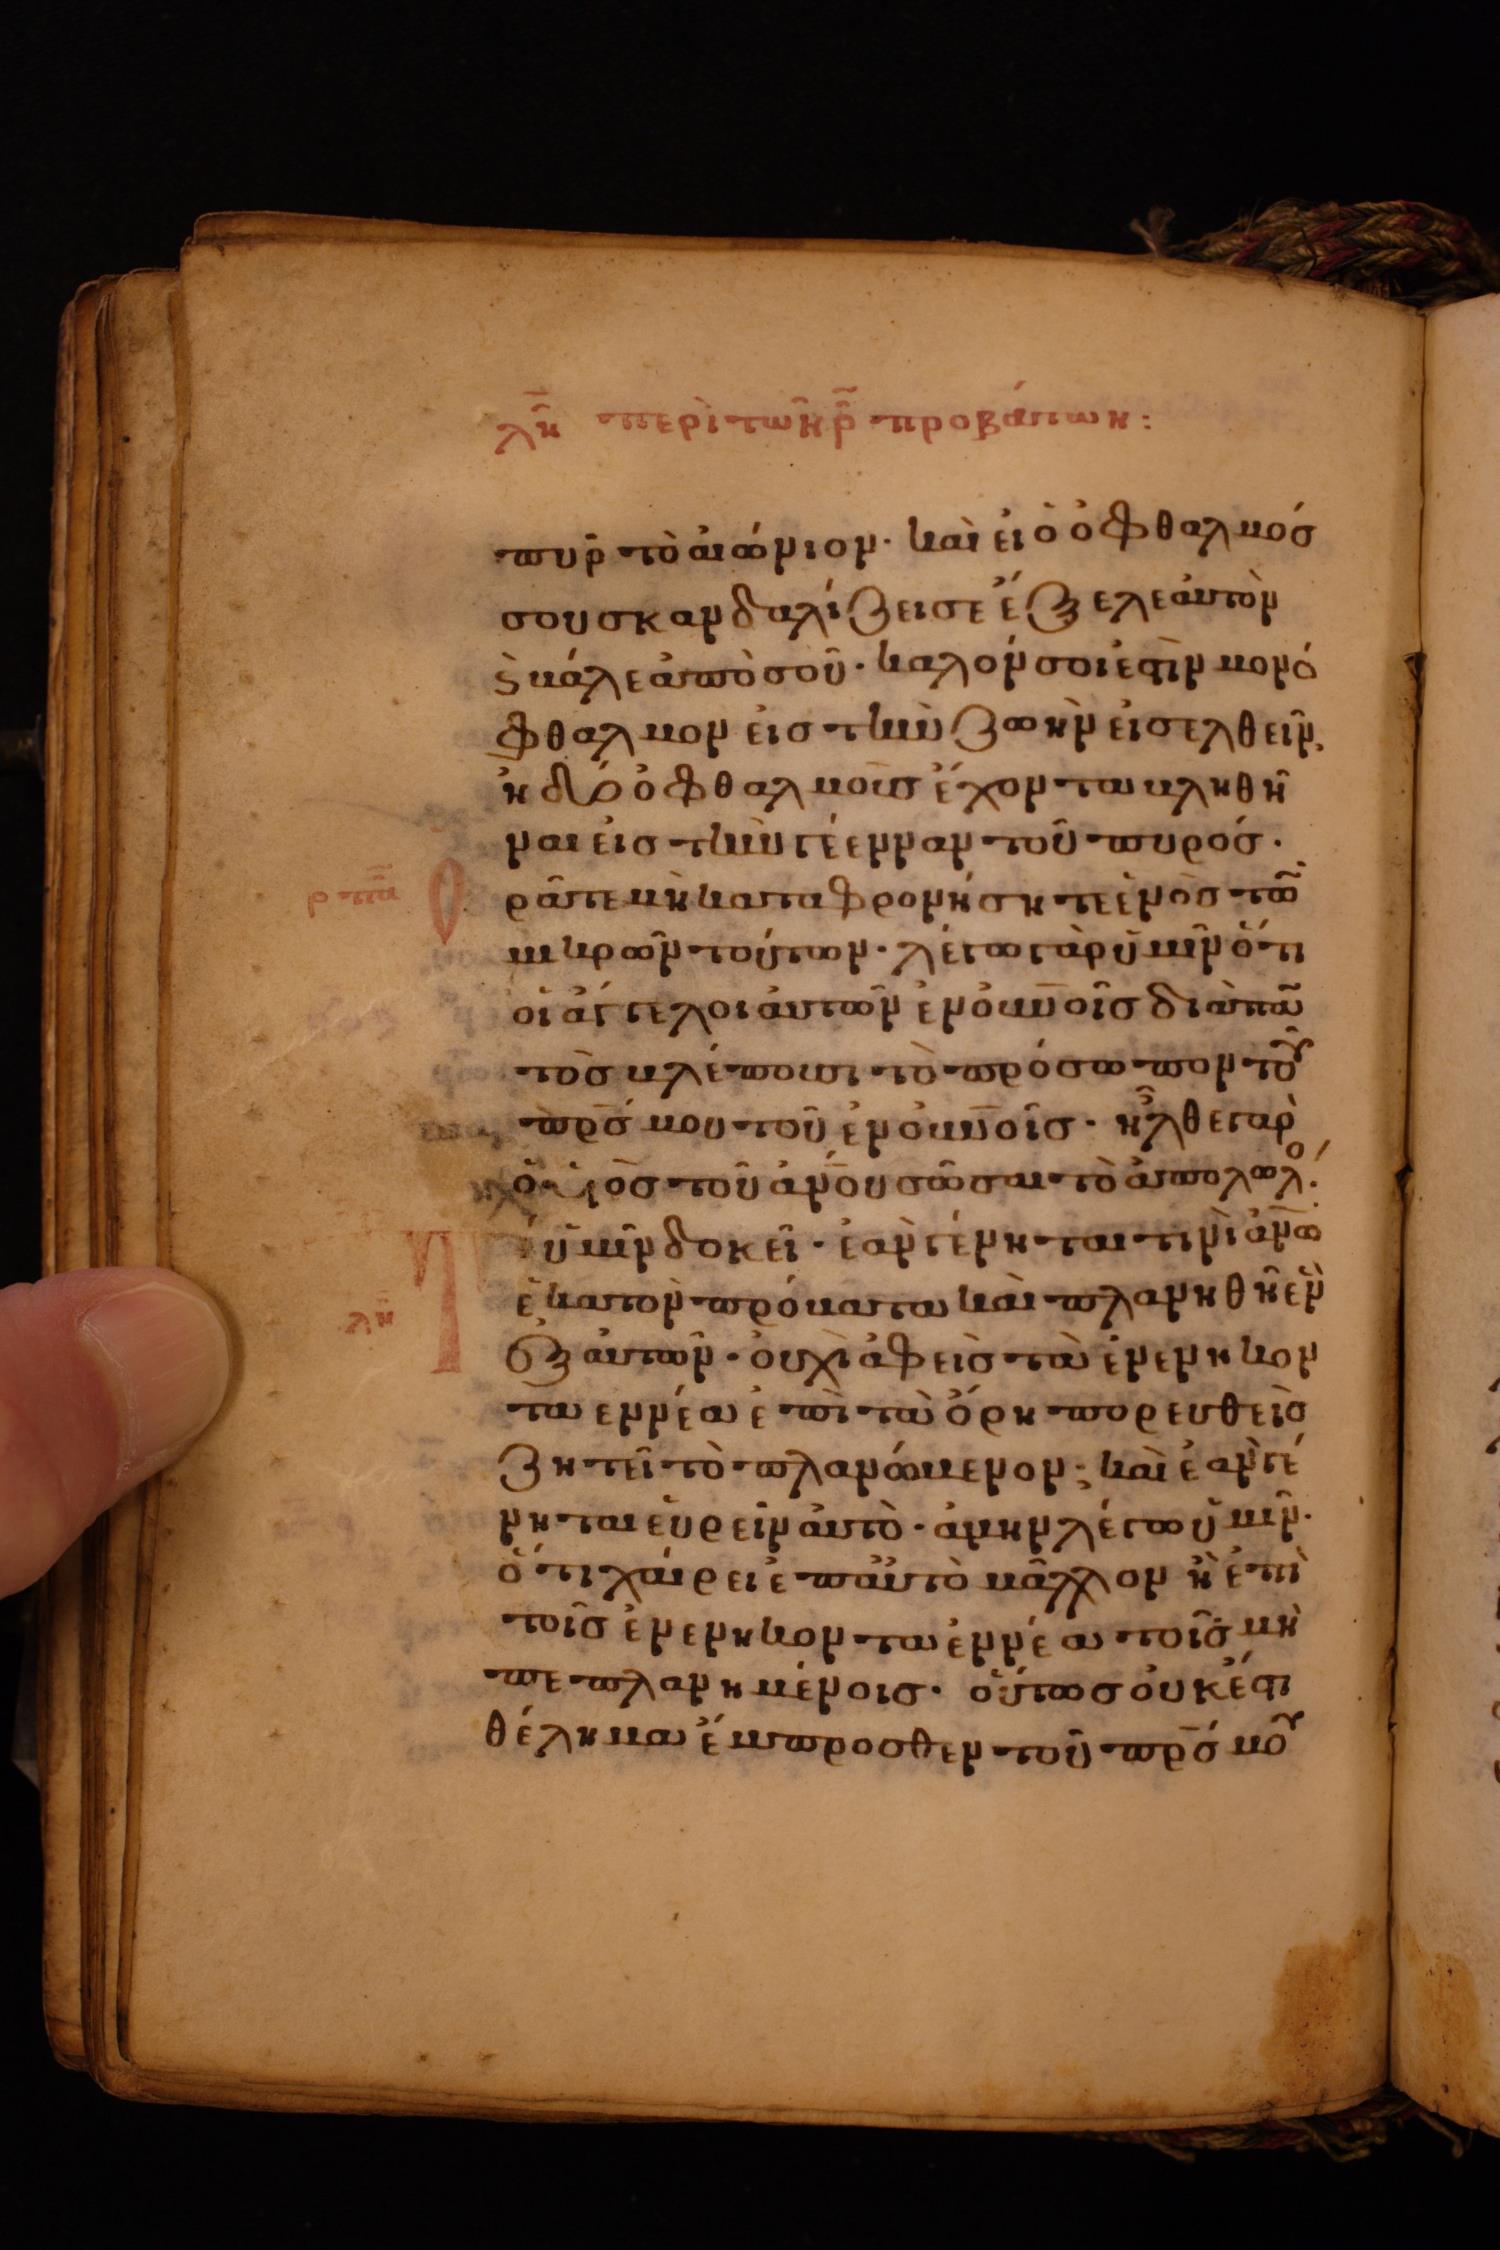 λη περὶ τῶν ρ προβάτων:
πυρ τὸ αἰώνιον· καὶ εἰ ὁ ὀφθαλμός
σου σκανδαλίζει σε ἔξελε ἀυτὸν
ϗ βάλε ἀπὸ σοῦ· καλόν σοι ἐστὶν μονό
φθαλμον εἰσ τὴν ζωὴν εἰσελθεῖν,
ἢ δύο ὀφθαλμοὺσ ἔχοντα βληθῆ
ναι εἰσ τὴν γέενναν τοῦ πυρόσ·
ρπη Ὁρᾶτε μὴ καταφρονήσητε ἑνὸσ τῶ
μικρῶν τούτων· λέγω γὰρ ὑμῖν ὅτι
οἱ ἄγγελοι ἀυτῶν ἐν οὐνοῖσ διὰ πα
τὸσ βλέπουσι τὸ πρόσωπον τοῦ
πρσ μου τοῦ ἐν οὐνοῖσ· ἦλθε γαρ
ὁ υἱὸσ τοῦ ἀνου σῶσαι τὸ ἀπολωλό·
λη Τί ὑμῖν δοκεῖ· ἐὰν γένηται τινὶ ἀνω
ἑκατὸν πρόβατα καὶ πλανηθῆ ἓν
ἐξ ἀυτῶν· ὀυχὶ ἀφεὶσ τὰ ἐνενηκον
τα εννέα ἐπὶ τὰ ὄρη πορευθεὶσ
ζητεῖ τὸ πλανώμενον; καὶ ἐὰν γέ
νηται εὑρεῖν ἀυτὸ· ἀμὴν λέγω ὑμῖν·
ὅτι χαίρει ἐπ ἀυτὸ μᾶλλον ἢ ἐπὶ
τοῖσ ἐνενηκονταἐννέα τοῖσ μὴ
πεπλανημένοισ· οὕτωσ ὀυκ ἔστι
θέλημα ἔμπροσθεν τοῦ πρσ μου